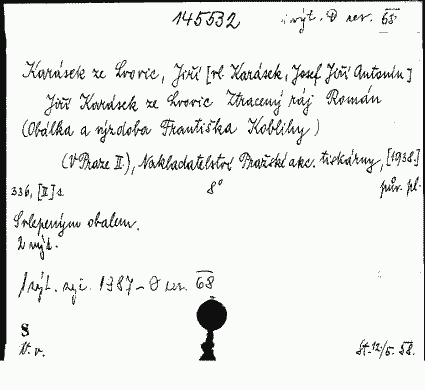 145532
výt. D rev. 68
Karásek ze Lvovic, Jiří [vl. Karásek, Josef Jiří Antonín]
Jiří Karásek ze Lvovic Ztracený ráj Román
(Obálka a výzdoba Františka Koblihy)
(V Praze II.), Nakladatelství Pražské akc. tiskárny, [1938.]
336, [II] s. 8° pův. pl.
S vlepeným obalem.
2 výt.
1 výt. 1387 - D rev. 68
8
V. v. St. 12/5. 58.